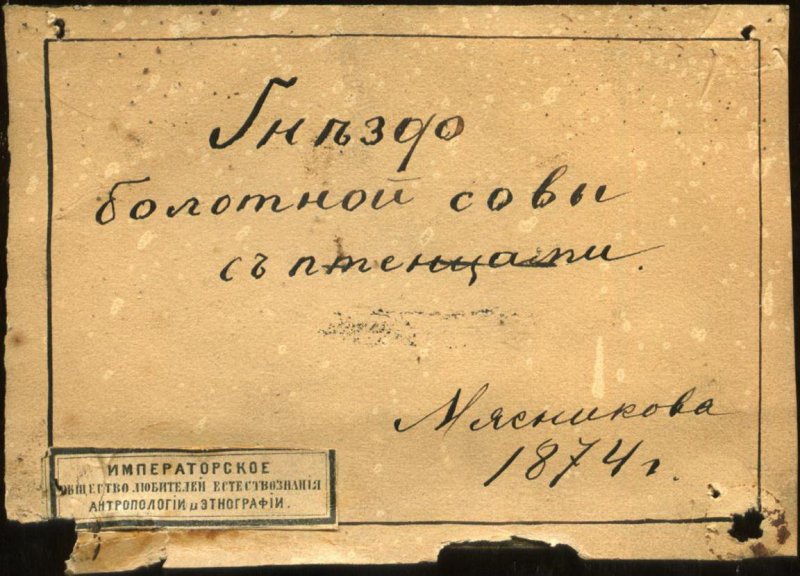 Гнѣздо
болотной совы
съ птенцами.
Мясникова
1874 г.
ИМПЕРАТОРСКОЕ
ОБЩЕСТВО ЛЮБИТЕЛЕЙ ЕСТЕСТВОЗНАНІЯ
АНТРОПОЛОГІИ и ЭТНОГРАФІИ.